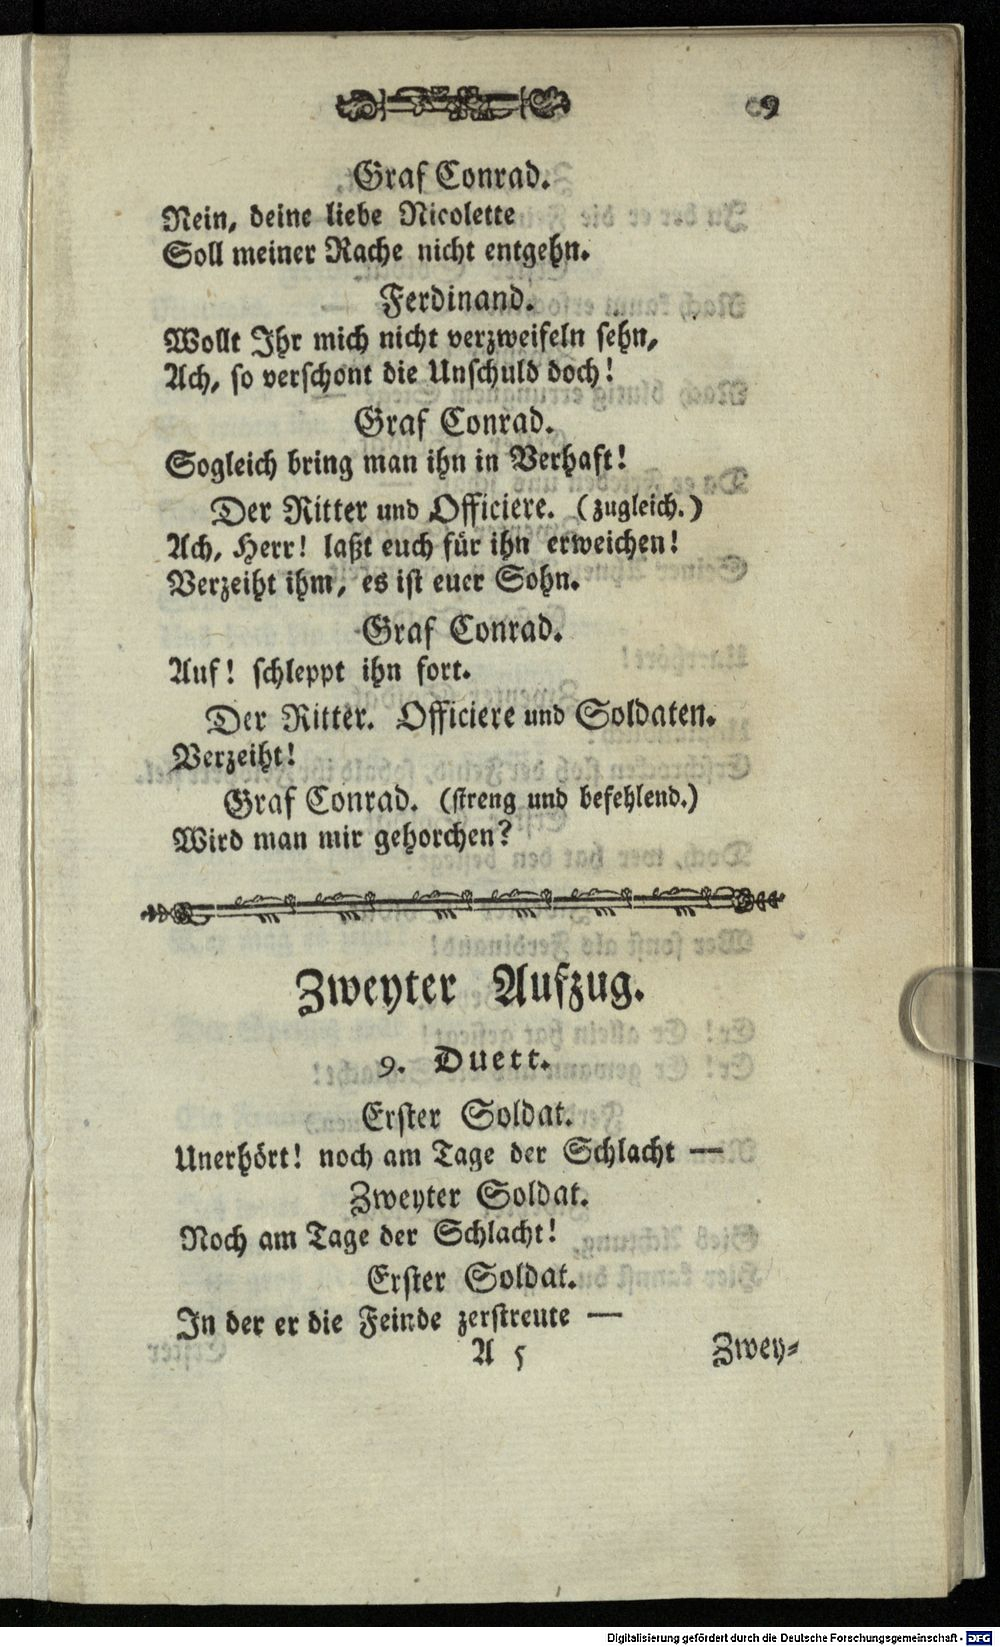 9
Graf Conrad.
Nein, deine liebe Nicolette
Soll meiner Rache nicht entgehn.
Ferdinand.
Wollt Ihr mich nicht verzweifeln sehn,
Ach, so verschont die Unschuld doch!
Graf Conrad.
Sogleich bring man ihn in Verhaft!
Der Ritter und Officiere. (zugleich.)
Ach, Herr! laßt euch für ihn erweichen!
Verzeiht ihm, es ist euer Sohn.
Graf Conrad.
Auf! schleppt ihn fort.
Der Ritter. Officiere und Soldaten.
Verzeiht!
Graf Conrad. (streng und befehlend.)
Wird man mir gehorchen?
Zweyter Aufzug.
9. Duett.
Erster Soldat.
Unerhört! noch am Tage der Schlacht —
Zweyter Soldat.
Noch am Tage der Schlacht!
Erster Soldat.
In der er die Feinde zerstreute —
A 5 Zwey-
Digitalisierung gefördert durch die Deutsche Forschungsgemeinschaft - DFG